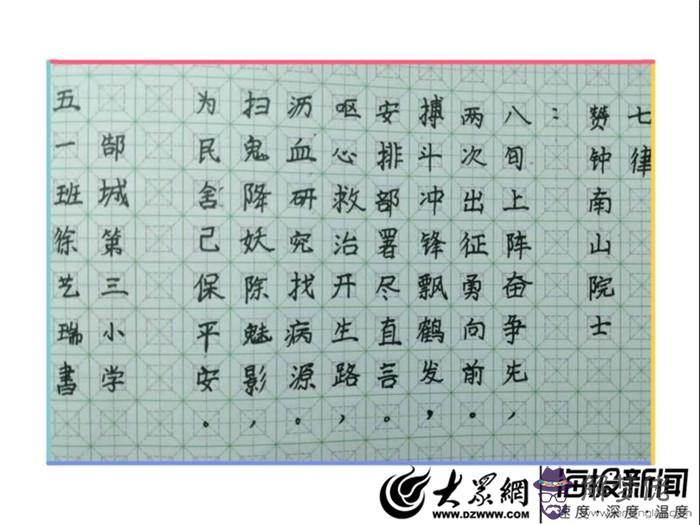 七律
赞钟南山院士
：
八旬上阵奋争先，
两次出征勇向前。
搏斗冲锋飘鹤发，
安排部署尽直言。
呕心救治开生路，
沥血研究找病源。
扫鬼降妖除魅影，
为民舍己保平安。
郜城第三小学
五一班徐艺瑞書
大眾網
WWW.DZWWW.COM
海报新闻
速度·深度·温度